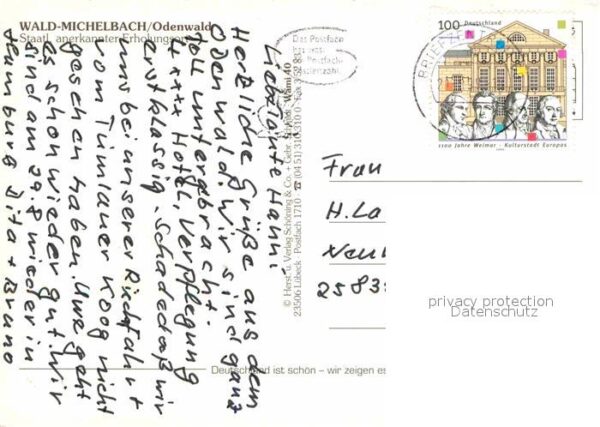 WALD-MICHELBACH/Odenwald
Staatl. anerkannter Erholungsort
Liebe Tante Hanni,
Herzliche Grüße aus dem
Odenwald. Wir sind ganz
toll untergebracht.
4 xxxx Hotel, Verpflegung
erstklassig. Schade daß wir
uns bei unserer Rückfahrt
vom Tümlauer Koog nicht
gesehen haben. Uwe geht
es schon wieder gut. Wir
sind am 29.8 wieder in
Hamburg Dita + Bruno
© Herst. u. Verlag Schöning & Co. + Gebr. Schmidt
23506 Lübeck · Postfach 1710 · ☎ (04 51) 310 310 0
Wami 40
Das Postfach
Postfach
BRIEF
100 Deutschland
1100 Jahre Weimar - Kulturstadt Europas
Frau
H. La
Neu
2583
privacy protection
Datenschutz
Deutschland ist schön – wir zeigen es